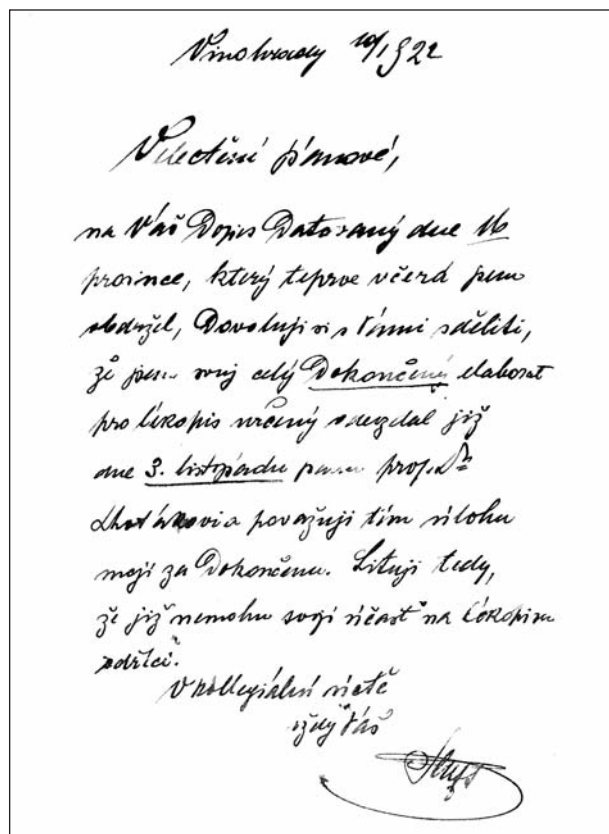 Vinohrady 10/1 922
Velectění pánové,
na Váš Dopis Datovaný dne 16
prosince, který teprve včera jsem
obdržel, Dovoluji si s Vámi sděliti,
že jsem svůj celý Dokončený elaborat
pro lékopis určený odevzdal již
dne 3. listopadu panu prof. Dr
Lhotákovi a považuji tím úlohu
moji za Dokončenu. Lituji tedy,
že již nemohu svoji účast na Lékopisu
V kollegiální úctě
vždy Váš